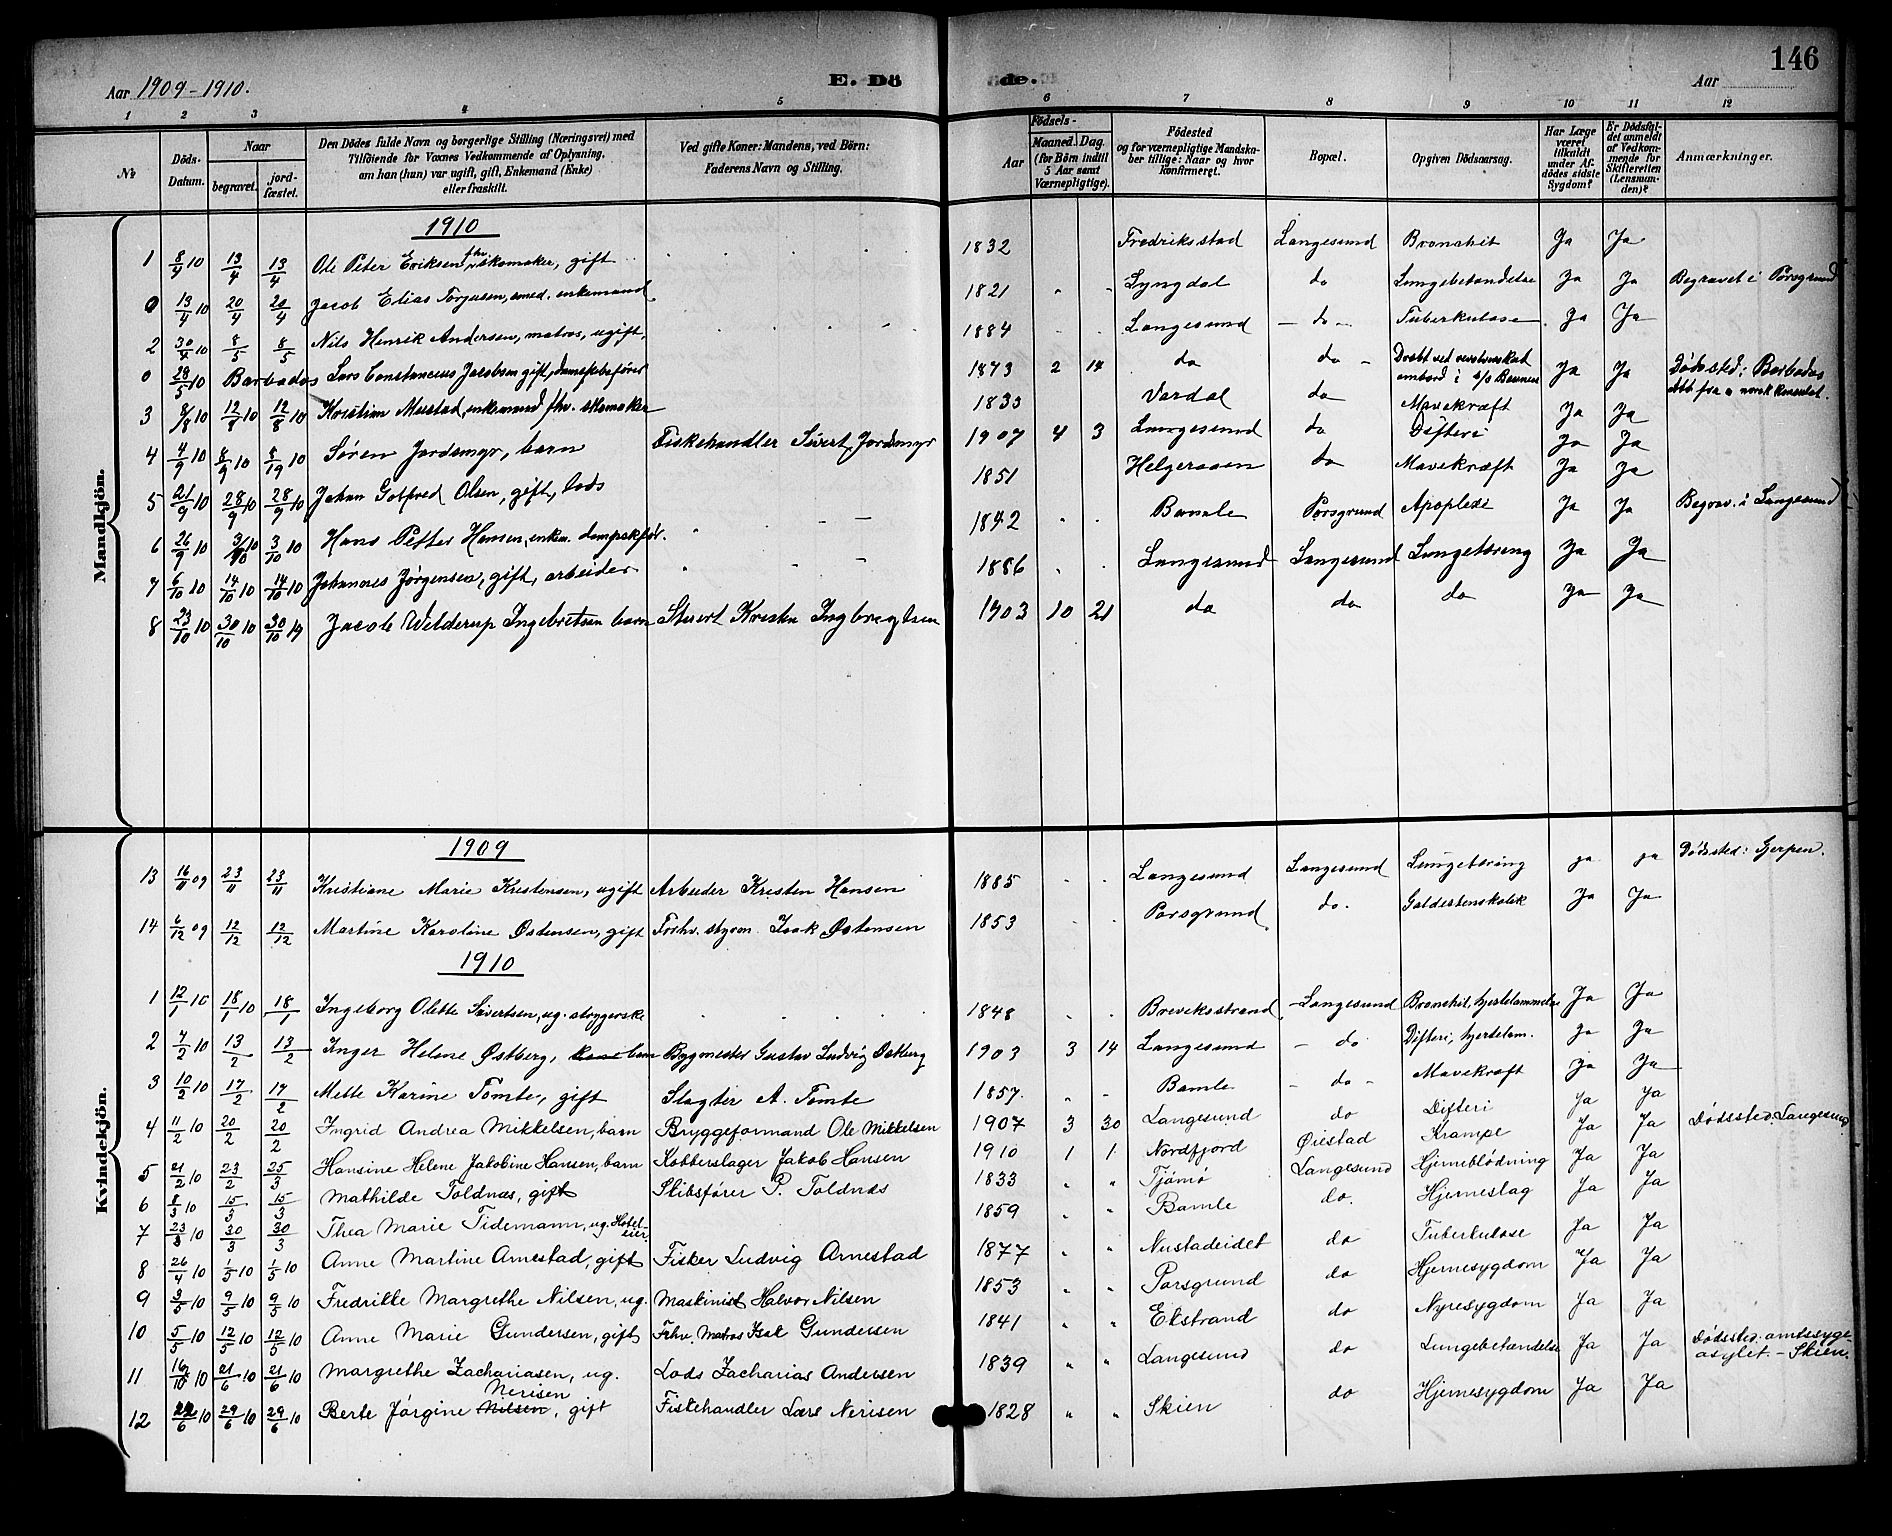 146
Aar 1909-1910. E. Dö de. Aar
1 2 3 4 5 6 7 8 9 10 11 12
No Döds-Datum. Naar begravet. jord-fæstet. Den Dödes fulde Navn og borgerlige Stilling (Næringsvei) med Tilföiende for Voxnes Vedkommende af Oplysning, om han (hun) var ugift, gift, Enkemand (Enke) eller fraskilt. Ved gifte Koner: Mandens, ved Börn: Faderens Navn og Stilling. Födsels- Aar Maaned. Dag. (for Börn indtil 5 Aar samt Værnepligtige). Födested og for værnepligtige Mandskaber tillige: Naar og hvor konfirmeret. Bopæl. Opgiven Dödsaarsag. Har Læge været tilkaldt under Afdödes sidste Sygdom? Er Dödsfaldet anmeldt af Vedkommende for Skifteretten (Lensmanden)? Anmærkninger.
Mandkjön.
1910
1 8/4 10 13/4 13/4 Ole Peter Eriksen fhv. skomaker, gift 1832 Fredriksstad Langesund Bronchit Ja Ja
0 13/4 10 20/4 20/4 Jacob Elias Torjusen, smed. enkemand 1821 Lyngdal do Lungebetændelse Ja Ja Begravet i Porsgrund
2 30/4 10 8/5 8/5 Nils Henrik Andersen, matros, ugift, 1884 Langesund - do - Tuberkulose Ja Ja
0 28/5 10 Barbados Lars Constancius Jacobsen gift, dampskibsfører 1873 2 14 do do - Dræbt ved ombord i s/s Ja Ja Dødssted: Barbados att. fra norsk konsulat.
3 8/8 10 12/8 10 12/8 10 Kristian Mustad, enkemand fhv. skomaker 1833 Værdal do Mavekræft Ja Ja
4 4/9 10 8/9 10 8/9 10 Søren Jordsmyr, barn Fiskehandler Sivert Jordsmyr 1907 4 3 Langesund do Difteri Ja Ja
5 21/9 10 28/9 10 28/9 10 Johan Gotfred Olsen, gift, lods 1851 Helgeraaen do Mavekræft Ja Ja
6 26/9 10 3/10 10 3/10 10 Hans Petter Hansen, enkem. dampskfør. 1842 Bamle Porsgrund Apoplexi Ja Ja Begrav. i Langesund
7 6/10 10 14/10 10 14/10 10 Johannes Jørgensen, gift, arbeider 1886 Langesund Langesund Lungetæring Ja Ja
8 23/10 10 30/10 10 30/10 10 Jacob Welderup Ingebretsen barn Stuert Kristen Ingbregtsen 1903 10 21 do do do Ja Ja
Kvindekjön.
1909
13 16/11 09 23/11 23/11 Kristiane Marie Kristensen, ugift Arbeider Kristen Hansen 1885 Langesund Langesund Lungetæring ja ja Dødssted: Gjerpen.
14 6/12 09 12/12 12/12 Martine Karoline Østensen, gift Forhv. styrm. Isak Østensen 1853 Porsgrund do. Galdestenskolik Ja Ja
1910
1 12/1 10 18/1 10 18/1 Ingeborg Olette Sivertsen, ug. strygerske 1848 Breviksstrand Langesund Bronchit, hjertelammelse Ja Ja
2 7/2 10 13/2 13/2 Inger Helene Østberg, barn Bygmester Gustav Ludvig Østberg 1903 3 14 Langesund - do Difteri, hjertelam. Ja Ja
3 10/2 10 17/2 17/2 Mette Karine Tomte, gift Slagter A. Tomte 1857. Bamle - do - Mavekræft Ja Ja
4 11/2 10 20/2 20/2 Ingrid Andrea Mikkelsen, barn Bryggeformand Ole Mikkelsen 1907 3 30 Langesund do Difteri Ja Ja
5 21/2 10 23/2 25/3 Hansine Helene Jakobine Hansen, barn Kobberslager Jakob Hansen 1910 1 1 Nordfjord Øiestad Krampe Ja Ja Dødssted: Langesund
6 8/3 10 15/3 15/3 Mathilde Toldnæs, gift Skibsfører P. Toldnæs 1833 " " Tjømø Langesund Hjerneblödning Ja Ja
7 23/3 10 30/3 30/3 Thea Marie Tidemann, ug. Hotel-eier 1859 " " Bamle do. Hjerneslag Ja Ja
8 26/4 10 1/5 10 1/5 10 Anne Martine Arnestad, gift Fisker Ludvig Arnestad 1877 " " Nustadeidet do Tuberkulose Ja Ja
9 3/5 10 9/5 10 9/5 10 Fredrikke Margrethe Nilsen, ug. Maskinist Halvor Nilsen 1853 " " Porsgrund do Hjernesygdom Ja Ja
10 5/5 10 12/5 10 12/5 10 Anne Marie Gundersen, gift Frhv. Matros Isak Gundersen 1841 " " Ekstrand do Nyresygdom Ja Ja
11 16/ 10 21/6 10 21/6 10 Margrethe Zachariasen, ug. Lods Zacharias Andersen 1839 " " Langesund do Lungebetændelse Ja Ja Dødssted: amtssyge-asylet. - Skien.
12 22/6 10 29/6 10 29/6 10 Berte Jørgine Nilsen Nerisen, gift Fiskehandler Lars Nerisen 1828 " " Skien do Hjernesygdom Ja Ja